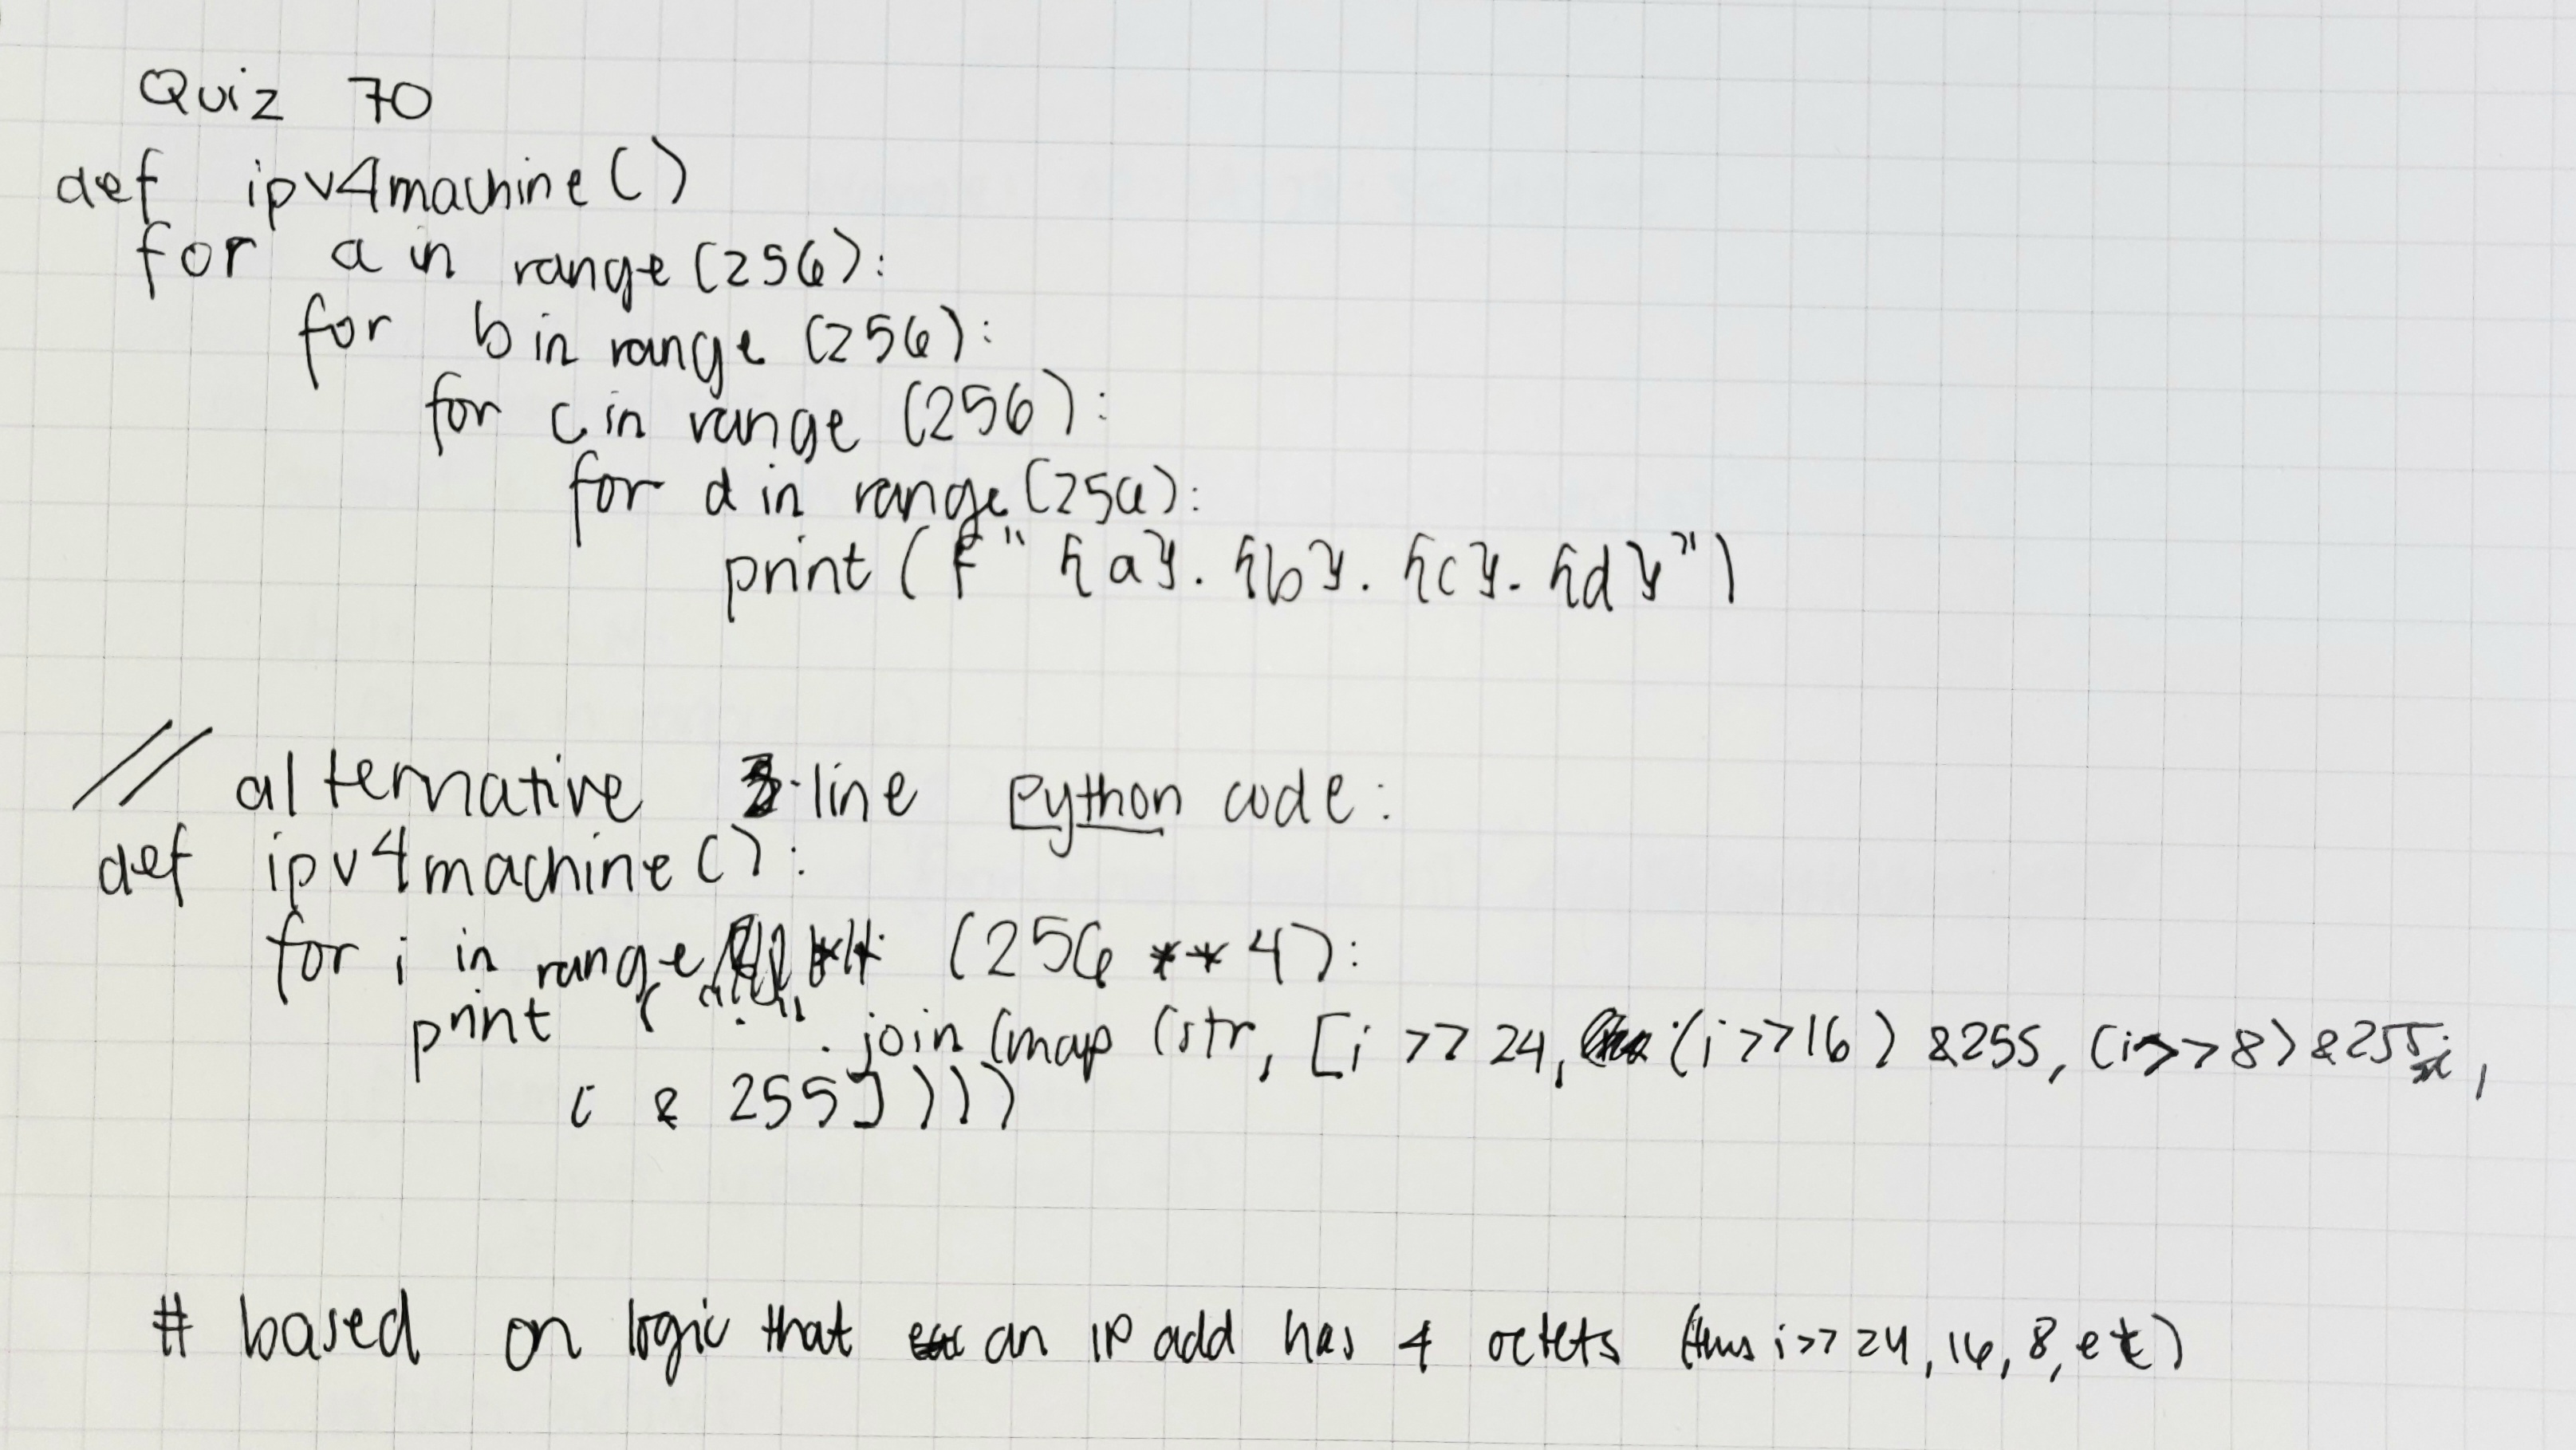 Quiz 70
def ipv4machine()
for a in range (256):
for b in range (256):
for c in range (256):
for d in range (256):
print (f" {a}. {b}. {c}. {d}")
// alternative 3-line Python code:
def ipv4machine():
for i in range (256 ** 4):
print ( "." .join (map (str, [i >> 24, (i >> 16) & 255, (i >> 8) & 255,
i & 255])))
# based on logic that an IP add has 4 octets (thus i >> 24, 16, 8, etc)